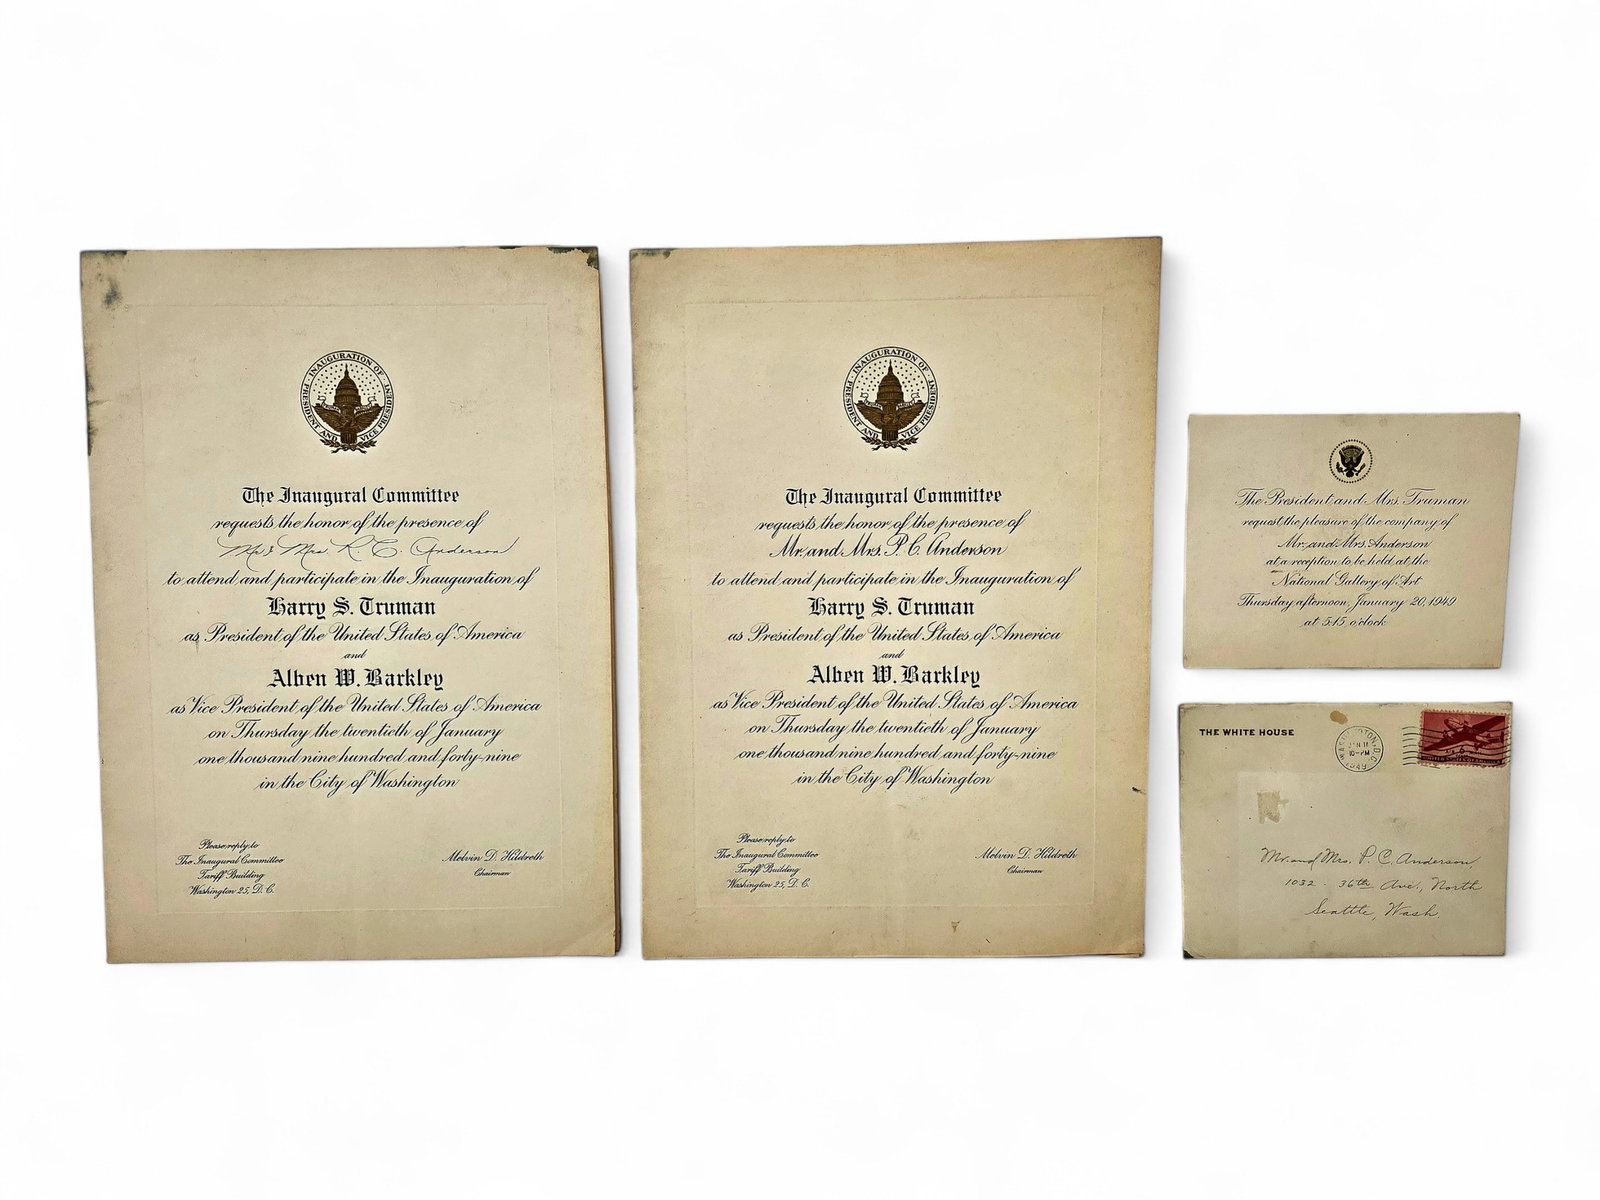 INAUGURATION OF PRESIDENT AND VICE PRESIDENT
The Inaugural Committee
requests the honor of the presence of
Mr & Mrs. R. C. Anderson
to attend and participate in the Inauguration of
Harry S. Truman
as President of the United States of America
and
Alben W. Barkley
as Vice President of the United States of America
on Thursday the twentieth of January
one thousand nine hundred and forty-nine
in the City of Washington
Please reply to
The Inaugural Committee
Tariff Building
Washington 25, D. C.
Melvin D. Hildreth
Chairman
INAUGURATION OF PRESIDENT AND VICE PRESIDENT
The Inaugural Committee
requests the honor of the presence of
Mr. and Mrs. P. C. Anderson
to attend and participate in the Inauguration of
Harry S. Truman
as President of the United States of America
and
Alben W. Barkley
as Vice President of the United States of America
on Thursday the twentieth of January
one thousand nine hundred and forty-nine
in the City of Washington
Please reply to
The Inaugural Committee
Tariff Building
Washington 25, D. C.
Melvin D. Hildreth
Chairman
The President and Mrs. Truman
request the pleasure of the company of
Mr. and Mrs. Anderson
at a reception to be held at the
National Gallery of Art
Thursday afternoon, January 20, 1949
at 5:15 o'clock
THE WHITE HOUSE
WASHINGTON, D.C.
JAN 11
10-PM
1949
6¢
UNITED STATES OF AMERICA
Mr. and Mrs. P. C. Anderson
1032 - 36th Ave., North
Seattle, Wash.